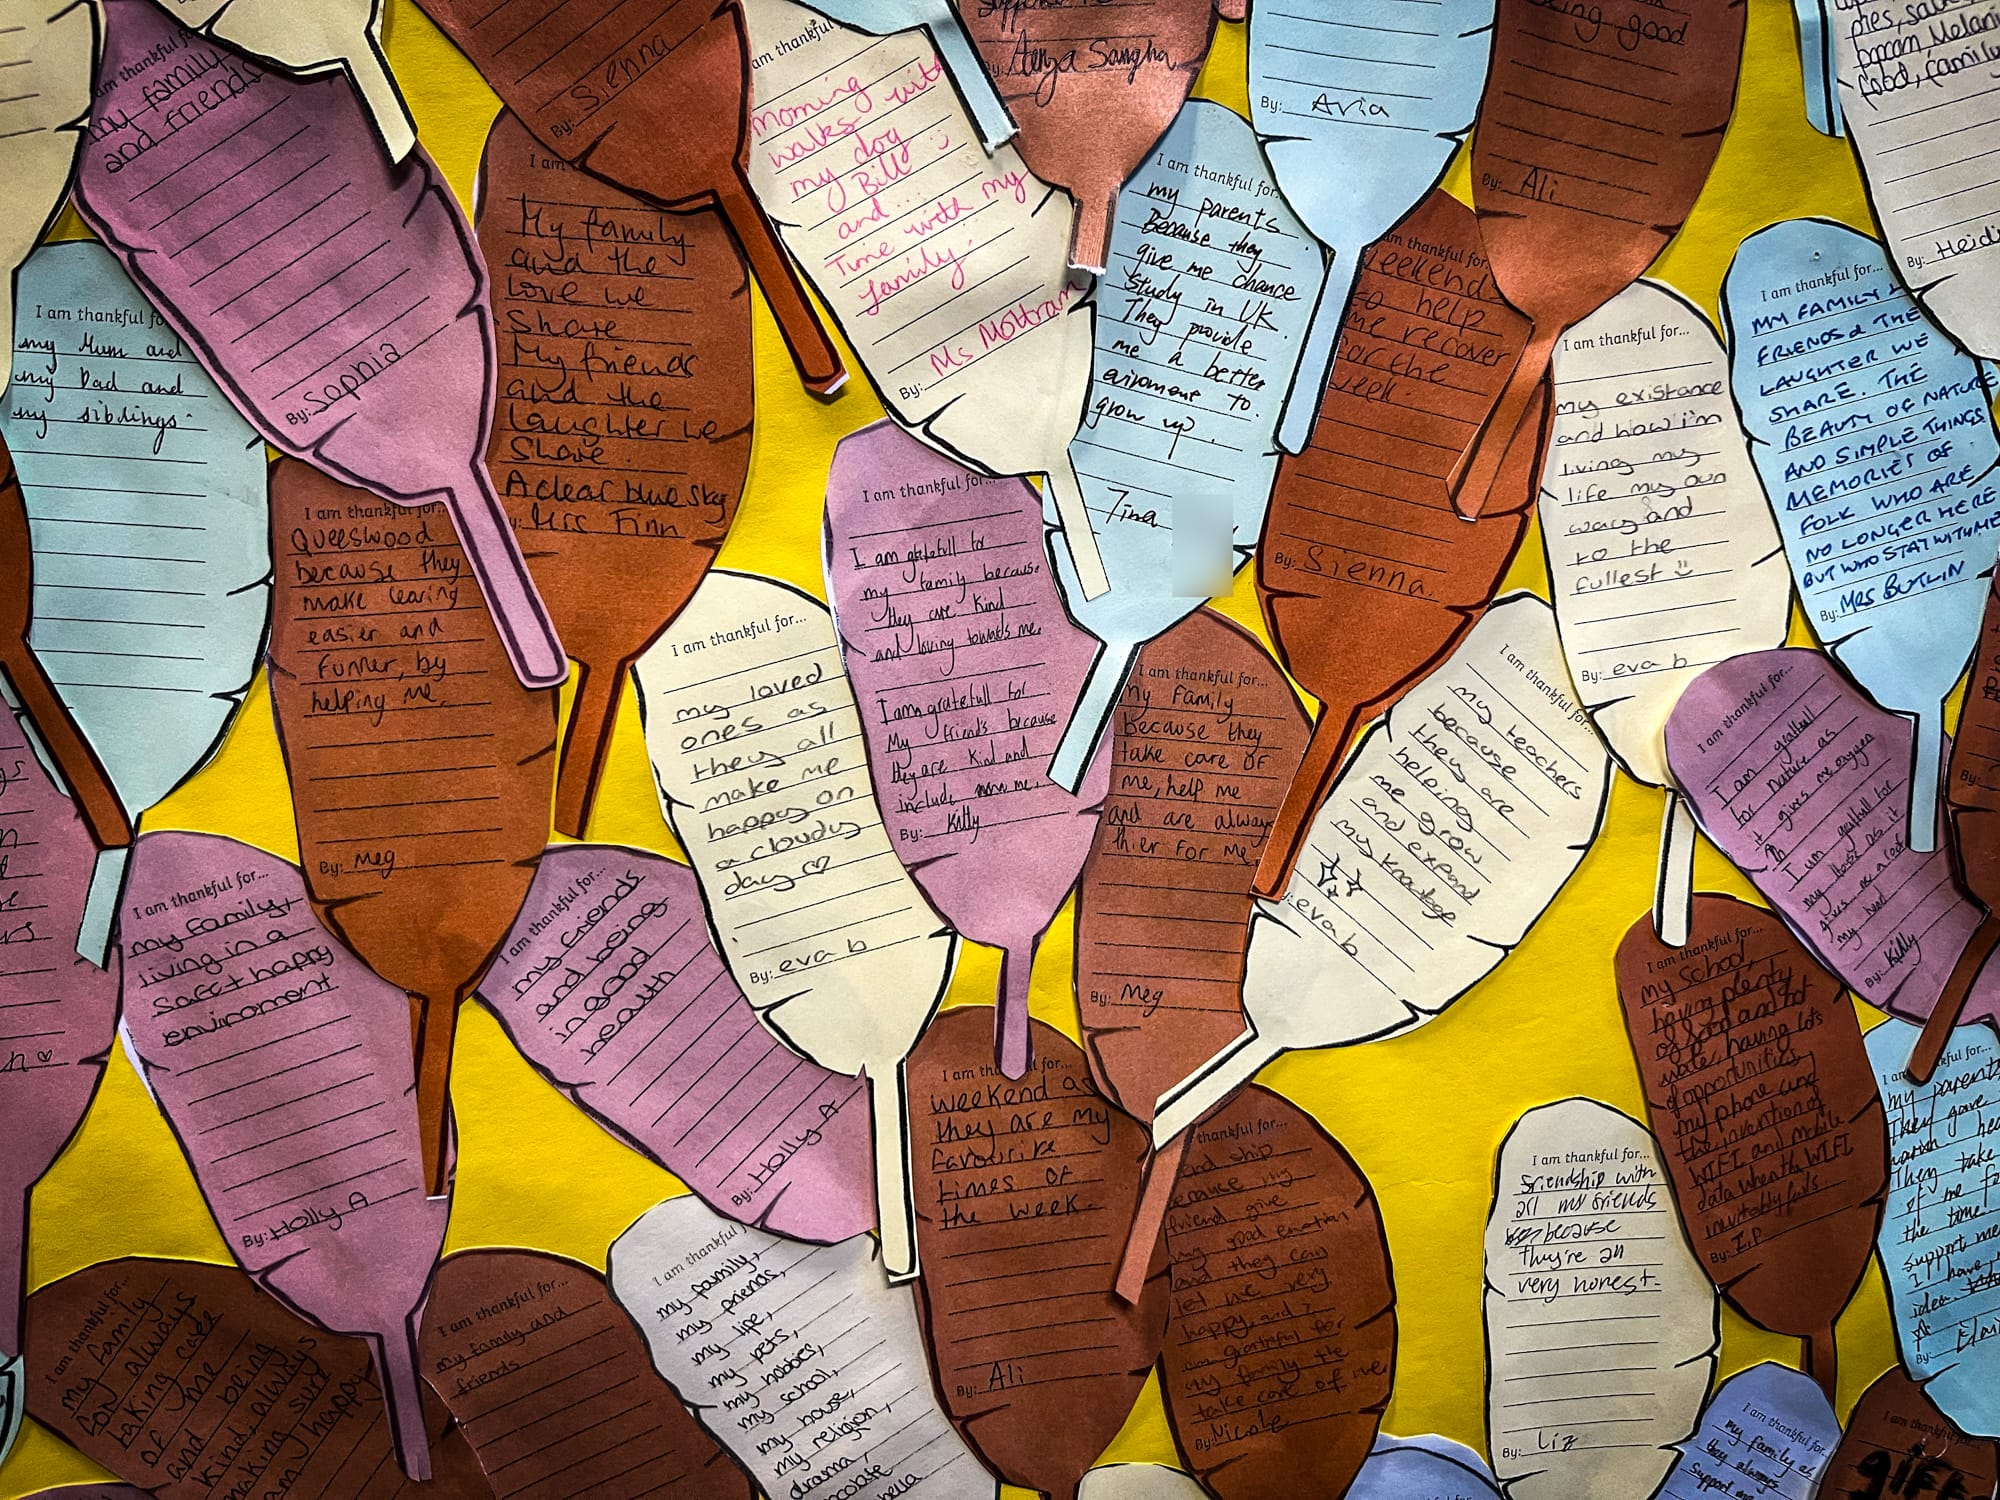 I am thankful
my family
and friends
By: Sophia
Sienna
By:
I am thankful
Morning
walks with
my dog
Bill :)
and...
Time with my
family.
By: Ms Mottram
By: Aanya Sangha
By: Aria
being good
By: Ali
pies,
popcorn, Melan
food, family
By: Heidi
I am thankful fo
my Mum and
my Dad and
my siblings.
I am
My family
and the
love we
share
My friends
and the
laughter we
share.
A clear blue sky
Mrs Finn
I am thankful for..
my parents.
Because they
give me chance
study in UK.
They provide
me a better
eviroment to.
grow up.
Tina
am thankful for..
eekends
to help
me recover
for the
week.
By: Sienna.
I am thankful for...
my existance
and how i'm
living my
life my own
way and
to the
fullest
By: eva b
I am thankful for...
MY FAMILY &
FRIENDS & THE
LAUGHTER WE
SHARE. THE
BEAUTY OF NATURE
AND SIMPLE THINGS
MEMORIES OF
FOLK WHO ARE
NO LONGER HERE
BUT WHO STAY WITH ME
By: MRS BUTLIN
I am thankful for...
Queeswood
because they
make learing
easier and
funner, by
helping me.
By: Meg
I am thankful for..
I am gratefull for
my family because
they are kind
and loving towards me.
I am gratefull for
My friends because
they are kind and
include me.
By: Kitty
I am thankful for...
my loved
ones as
they all
make me
happy on
a cloudy
day ♡
By: eva b
I am thankful for...
my Family
Because they
take care OF
me, help me
and are always
thier For me.
By: Meg
I am thankful for...
my teachers
because
they are
helping
me grow
and expand
my knowlage
eva b
I am thankful for...
I am gratfull
for nature as
it gives me oxygen
I am gratfull for
my House as it
gives me a roof
my head
By: Kitty
I am thankful for...
my family,
living in a
safe + happy
enviroment
By: Holly A
I am thankful for...
my friends
and being
in good
health
By: Holly A
I am thankful for...
weekend as
they are my
favourite
times of
the week.
By: Ali
thankful for...
friend ship
because my
friend give
my good emotion
and they can
let me very
happy. and I
am grateful for
my family the
take care of me
By: Nicole
I am thankful for...
my school,
having plenty
of food and hot
water, having lots
of opportunities,
my phone and
the invention of
WIFI and mobile
data when the WIFI
inevitably fails.
By: I.P
I am thankful for...
my parents
They gave
They take
of me
the time
support me
I have
idea
By:
I am thankful for...
friendship with
all my friends
because
they're all
very honest.
By: Liz
I am thankful for...
my family
for always
taking care
of me
and being
kind, always
making sure
I am happy
I am thankful for...
my family and
friends
I am thankful
my family,
my friends,
my life,
my pets,
my hobbies,
my school,
my house,
my religion,
drama,
I am thankful for...
my family as
they always
support me
I am thankful for...